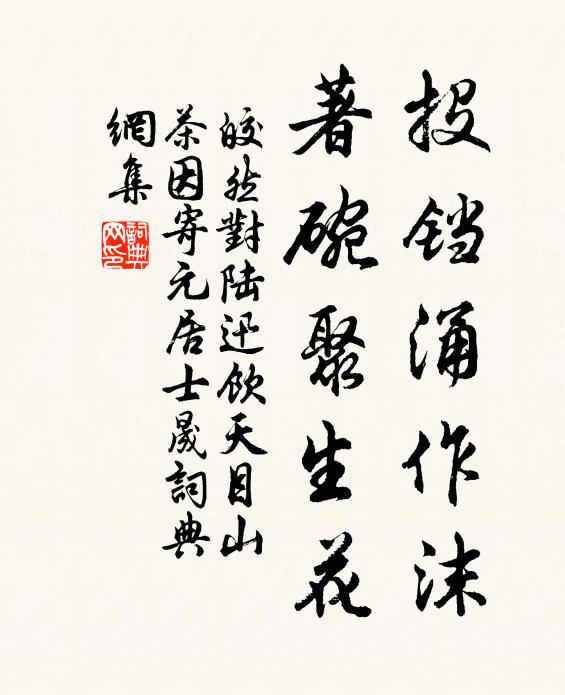 投铛涌作沫
著碗聚生花
皎然對陆迅飲天目山
茶因寄元居士晟詞典
網集
詞典
网印